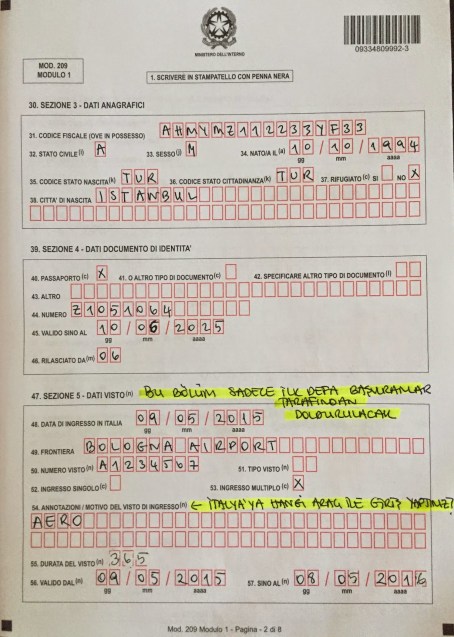 MINISTERO DELL'INTERNO
09334809992-3
MOD. 209
MODULO 1
1. SCRIVERE IN STAMPATELLO CON PENNA NERA
30. SEZIONE 3 - DATI ANAGRAFICI
31. CODICE FISCALE (OVE IN POSSESSO) AHMYMZ112233YF33
32. STATO CIVILE(i) A 33. SESSO(j) M 34. NATO/A IL(a) 10/10/1994
gg mm aaaa
35. CODICE STATO NASCITA(k) TUR 36. CODICE STATO CITTADINANZA(k) TUR 37. RIFUGIATO(c) SI NO X
38. CITTA' DI NASCITA ISTANBUL
39. SEZIONE 4 - DATI DOCUMENTO DI IDENTITA'
40. PASSAPORTO(c) X 41. O ALTRO TIPO DI DOCUMENTO(c) 42. SPECIFICARE ALTRO TIPO DI DOCUMENTO(l)
43. ALTRO
44. NUMERO Z1051064
45. VALIDO SINO AL 10/06/2025
gg mm aaaa
46. RILASCIATO DA(m) 06
47. SEZIONE 5 - DATI VISTO(n) BU BÖLÜM SADECE İLK DEFA BAŞVURANLAR
TARAFINDAN
DOLDURULACAK
48. DATA DI INGRESSO IN ITALIA 09/05/2015
gg mm aaaa
49. FRONTIERA BOLOGNA AIRPORT
50. NUMERO VISTO(n) A1234567 51. TIPO VISTO(n)
52. INGRESSO SINGOLO(c) 53. INGRESSO MULTIPLO(c) X
54. ANNOTAZIONI / MOTIVO DEL VISTO DI INGRESSO(n) ← İTALYA'YA HANGİ ARAÇ İLE GİRİŞ YAPTINIZ?
AERO
55. DURATA DEL VISTO(n) 365
56. VALIDO DAL(n) 09/05/2015 57. SINO AL(n) 08/05/2016
gg mm aaaa gg mm aaaa
Mod. 209 Modulo 1 - Pagina - 2 di 8